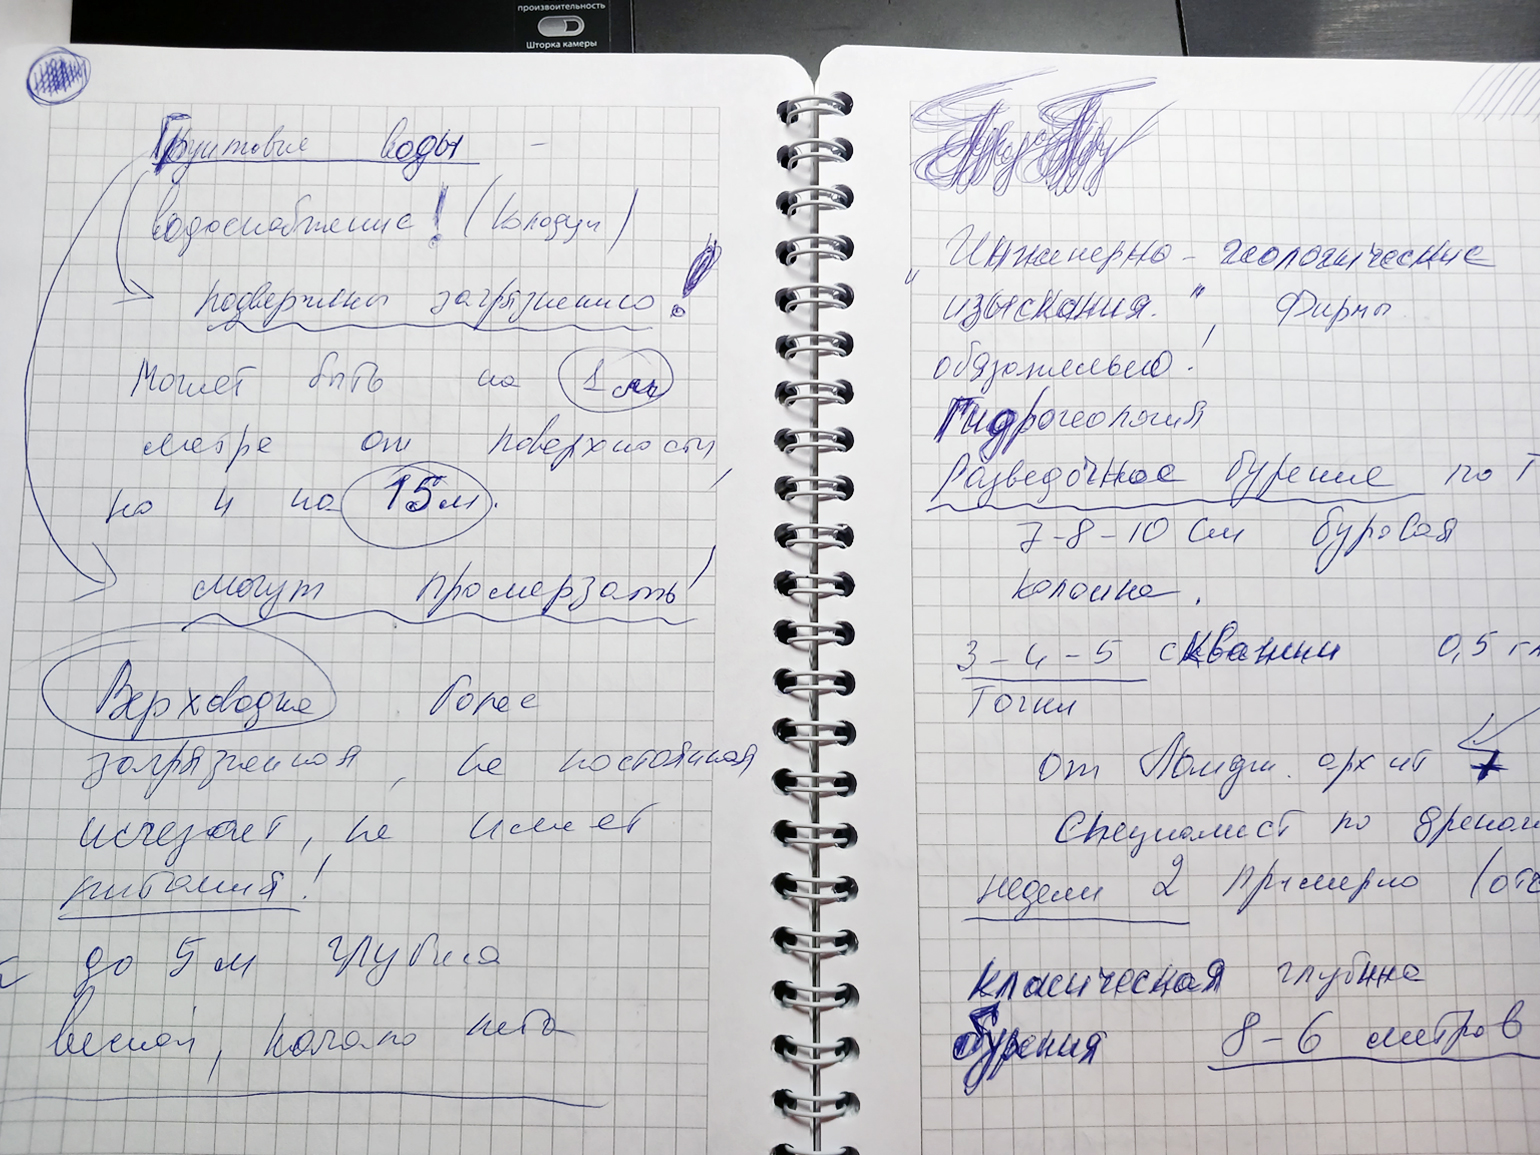 произвоительность
Шторка камеры
Грунтовые воды –
водоснабжение! (колодцы)
подвержены загрязнению!
Может быть на 1 м
метре от поверхности,
но и на 15 м.
могут промерзать!
Верховодка более
загрязненная, не постоянная
исчезает, не имеет
питания!
до 5 м глубина
весной, начало лета
Инженерно - геологические
"изыскания." Фирмы
обязательно!
Гидрогеология
Разведочное бурение по Т
7-8-10 см буровая
колонка.
3-4-5 скважин 0,5 га
Точки
от Ландш. архит
Специалист по дренаж
недели 2 примерно (отс
класическая глубина
бурения 8-6 метров